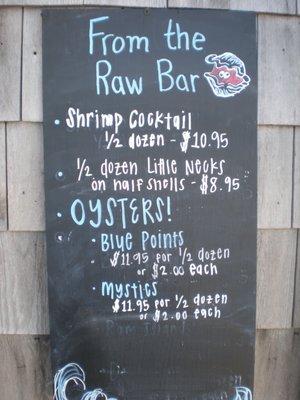 From the
Raw Bar
• Shrimp Cocktail
1/2 dozen - $10.95
• 1/2 dozen Little Necks
on half shells - $8.95
• OYSTERS!
• Blue Points
$11.95 for 1/2 dozen
or $2.00 each
• Mystics
$11.95 for 1/2 dozen
or $2.00 each